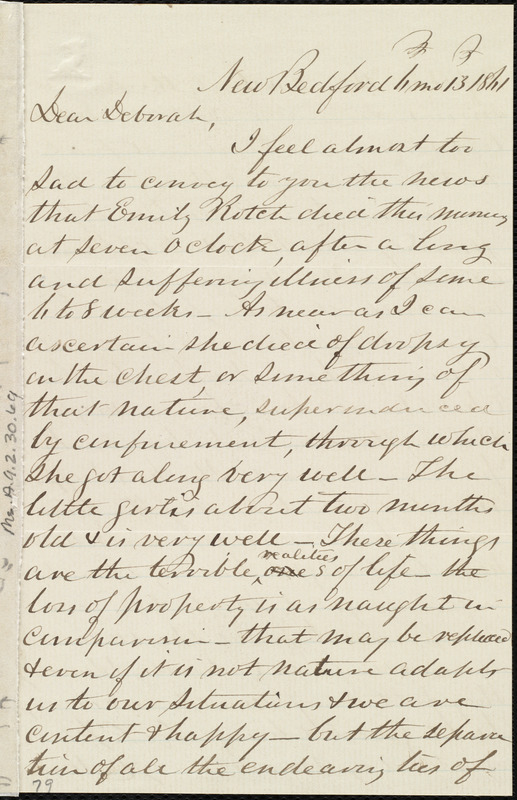 New Bedford 6 mo 13 1861
Dear Deborah,
I feel almost too
sad to convey to you the news
that Emily Rotch died this morning
at seven O clock, after a long
and suffering illness of some
6 to 8 weeks - As near as I can
ascertain she died of dropsy
on the chest, or something of
that nature, superinduced
by confinement, through which
she got along very well - The
little girl is about two months
old & is very well - These things
are the terrible realities of life - the
loss of property is as naught in
comparison - that may be replaced
& even if it is not nature adapts
us to our situations & we are
content & happy - but the separa
tion of all the endearing ties of
79
Ms. A.9.2.30.69